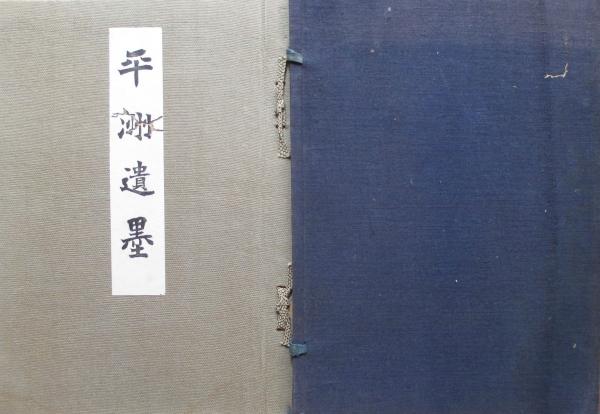 平洲遺墨